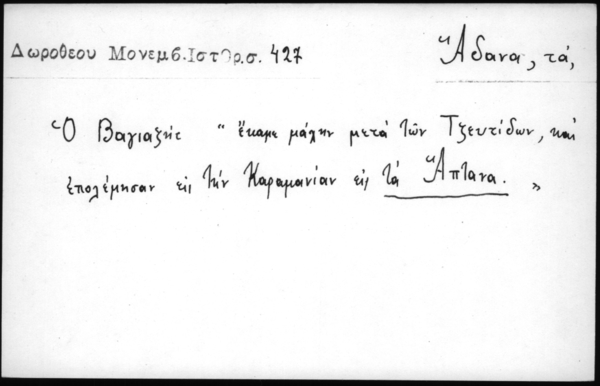 Δωροθεου Μονεμβ.Ιστορ.σ. 427
Ἄδανα, τά,
Ὁ Βαγιαζήτ "ἔκαμε μάχην μετά τῶν Τζευτίδων, καί
ἐπολέμησαν εἰς τήν Καραμανίαν εἰς τά Ἄπτανα. "